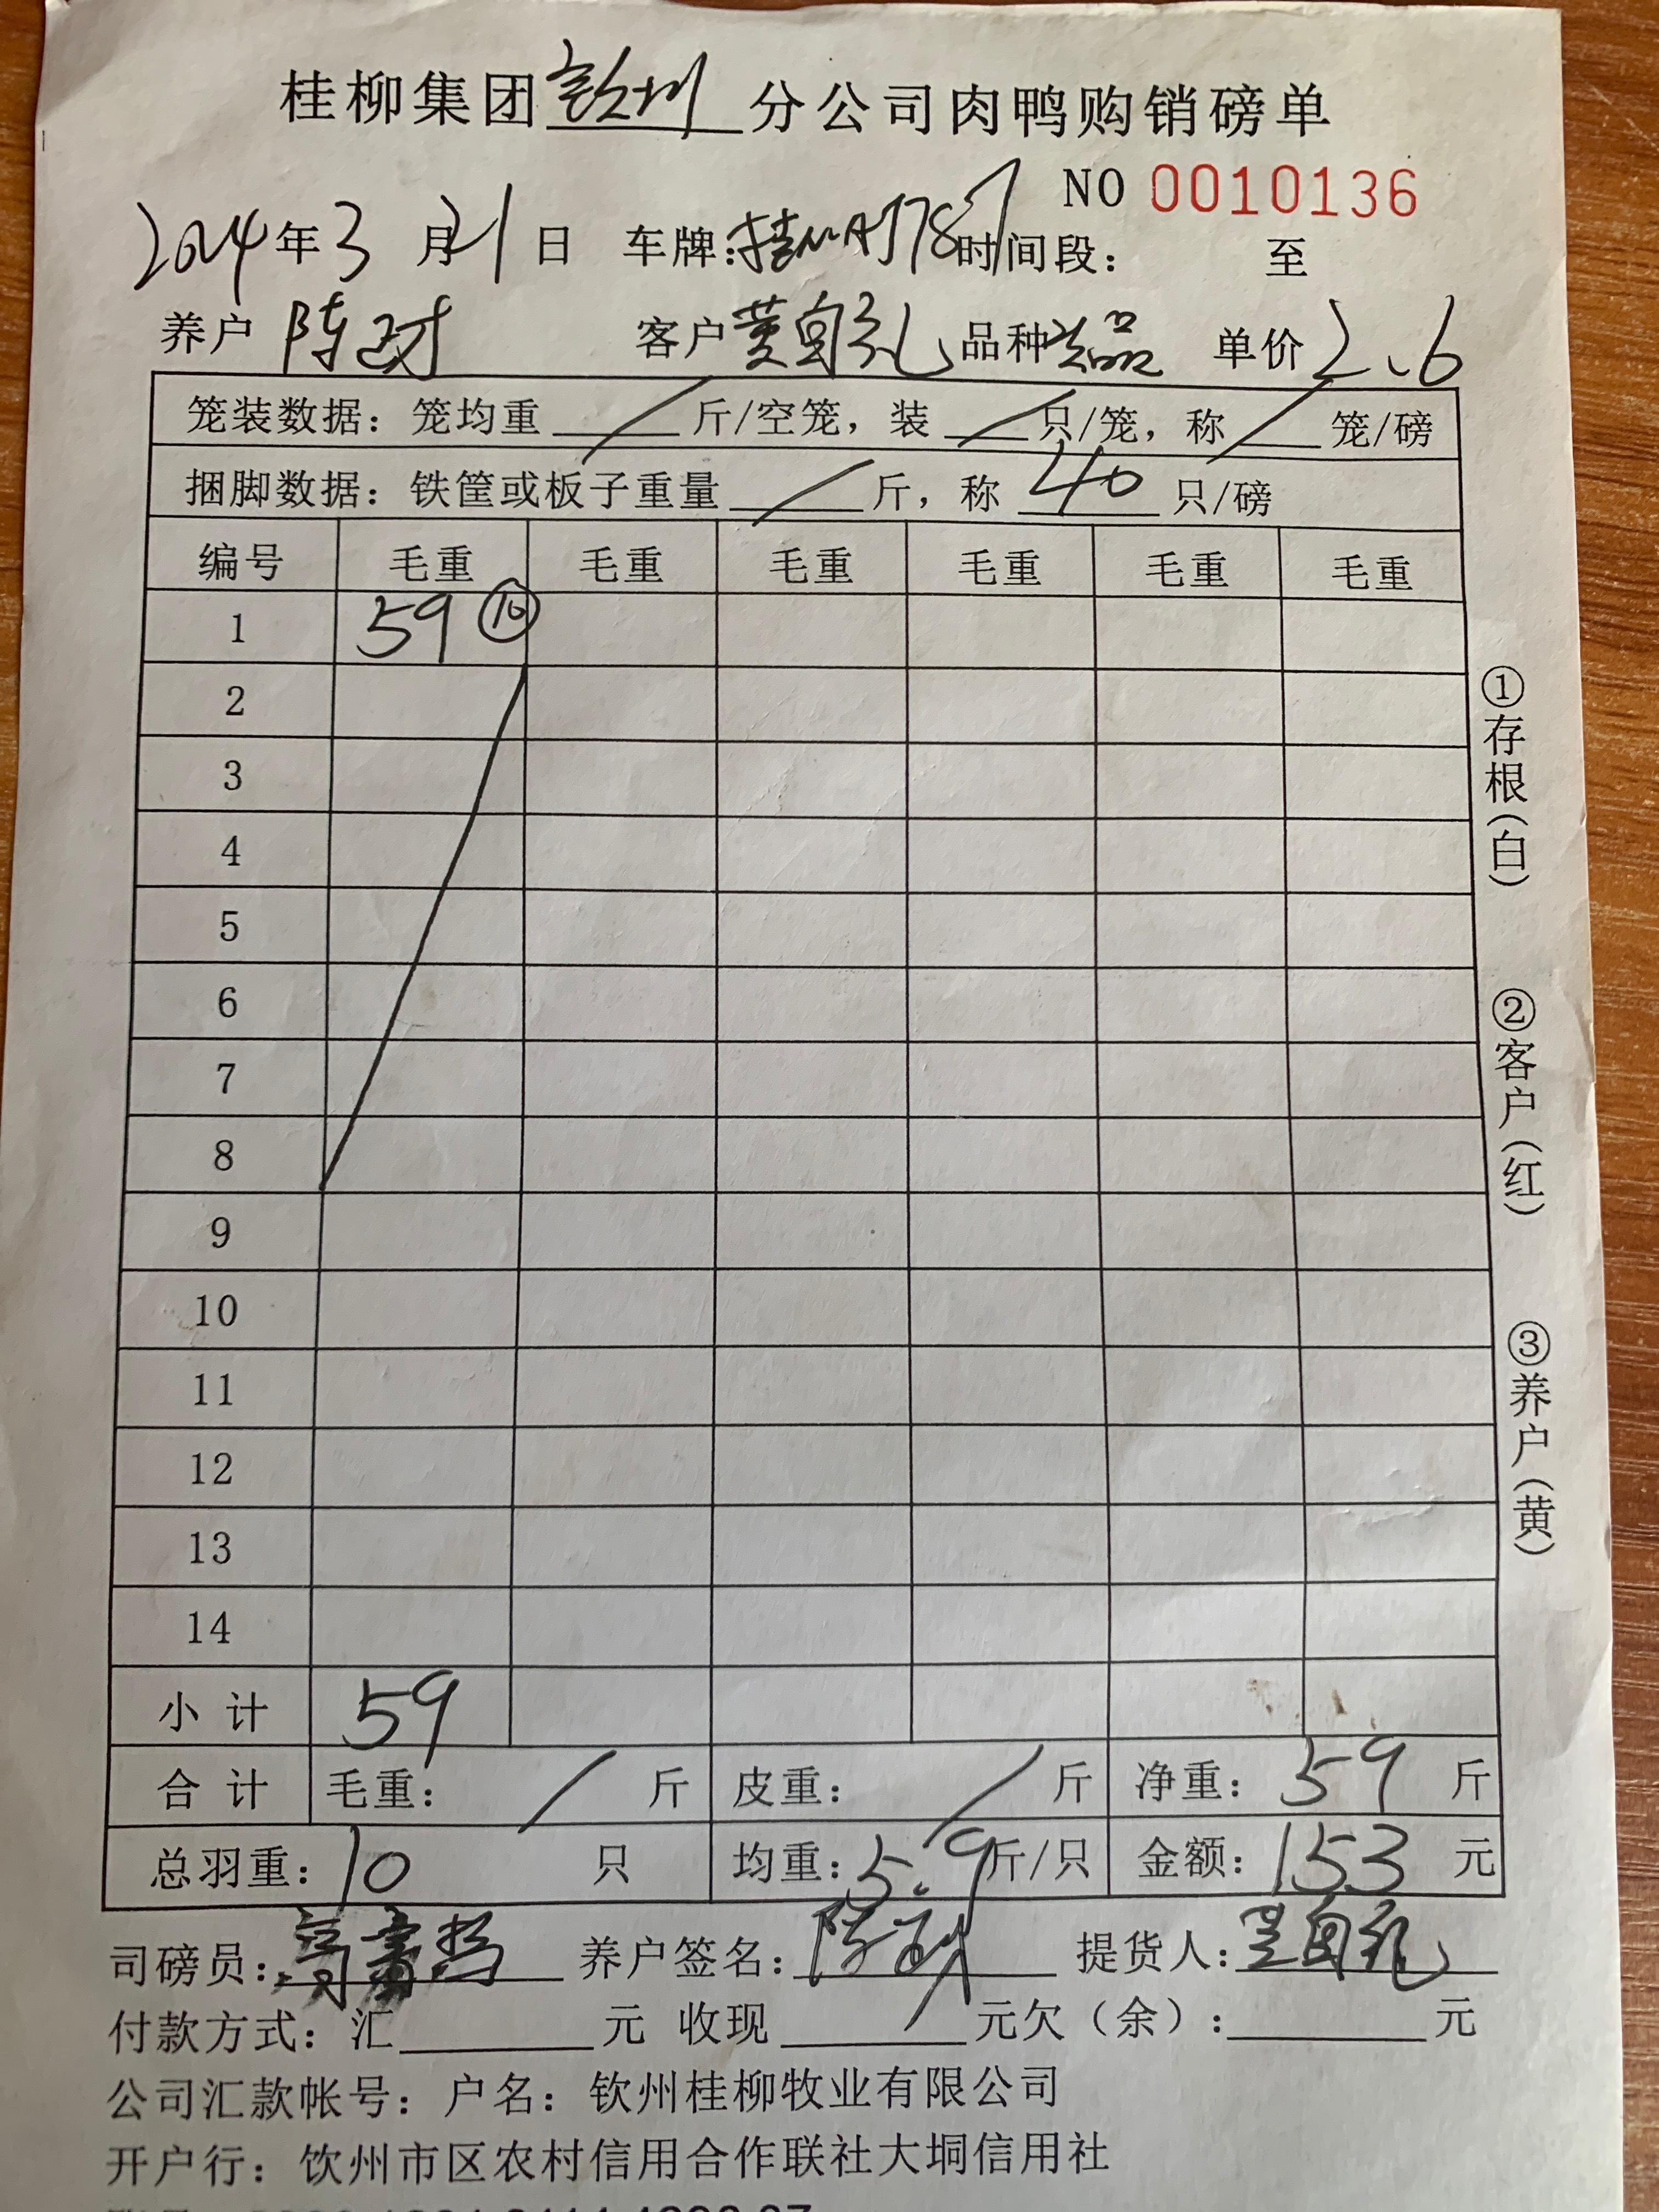 桂柳集团钦州分公司肉鸭购销磅单
NO 0010136
2024年3月21日 车牌: 时间段: 至
养户 陈 客户 黄自礼 品种 品 单价 2.6
笼装数据: 笼均重 / 斤/空笼, 装 / 只/笼, 称 / 笼/磅
捆脚数据: 铁筐或板子重量 / 斤, 称 40 只/磅
编号 毛重 毛重 毛重 毛重 毛重 毛重
1 59 ⑩
2
3
4
5
6
7
8
9
10
11
12
13
14
小计 59
合计 毛重: / 斤 皮重: / 斤 净重: 59 斤
总羽重: 10 只 均重: 5.9 斤/只 金额: 153 元
司磅员: 养户签名: 陈 提货人: 黄自礼
付款方式: 汇 元 收现 元欠(余): 元
公司汇款帐号: 户名: 钦州桂柳牧业有限公司
开户行: 钦州市区农村信用合作联社大垌信用社
①存根(白)
②客户(红)
③养户(黄)